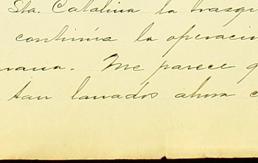 Sta. Catalina la trasqu
continúa la operacio
mana. Me parece q
tan lanados ahora c